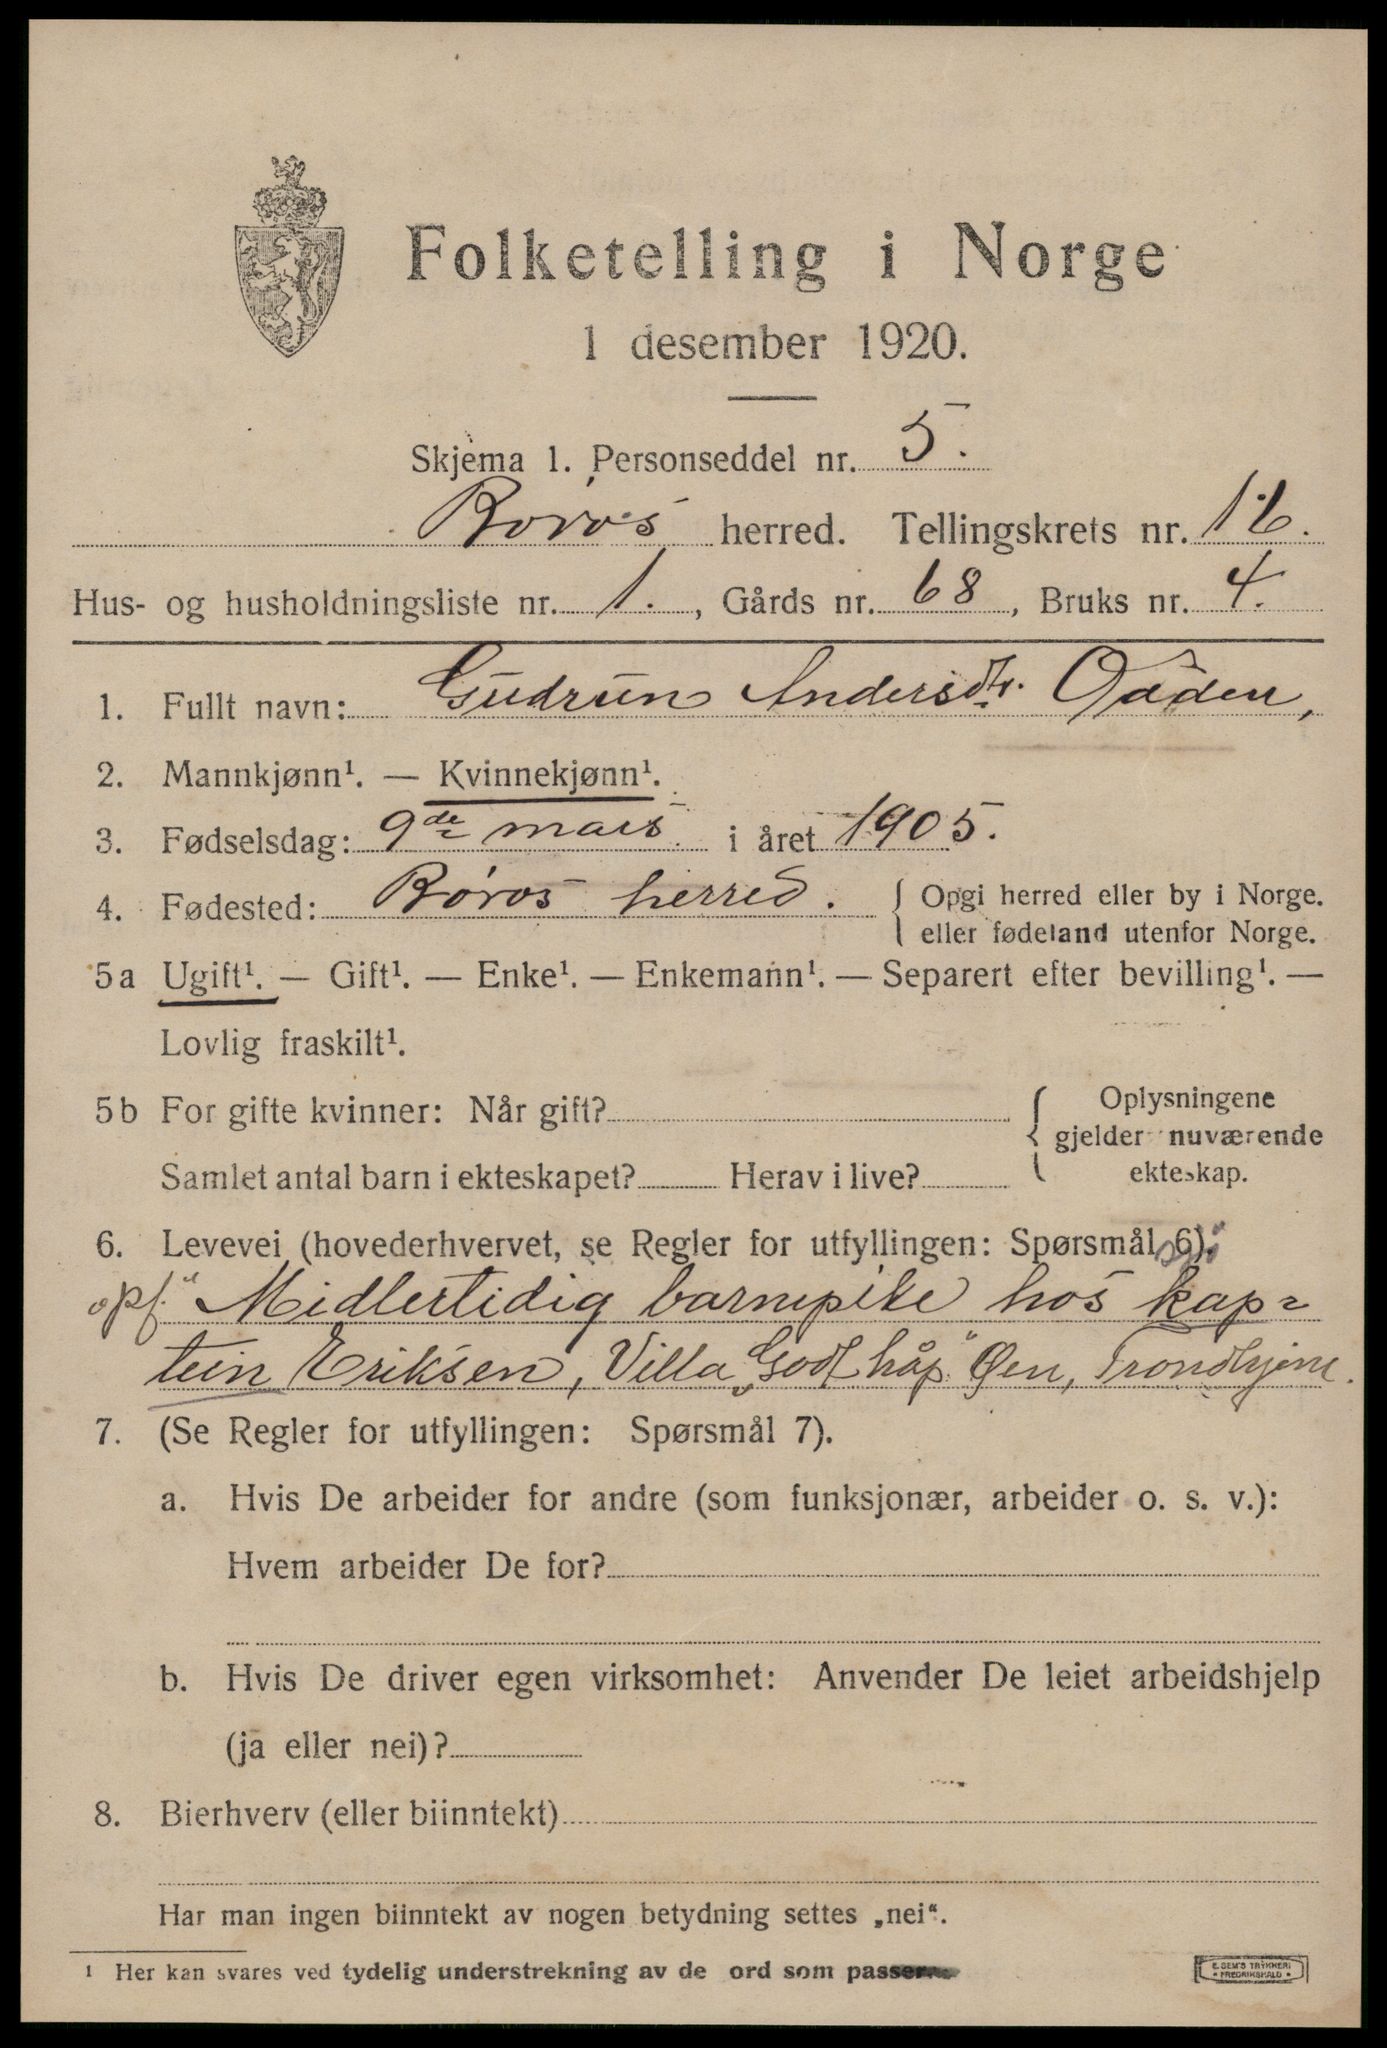 Folketelling i Norge
1 desember 1920.
Skjema 1. Personseddel nr. 5.
Røros herred. Tellingskrets nr. 16.
Hus- og husholdningsliste nr. 1., Gårds nr. 68, Bruks nr. 4.
1. Fullt navn: Gudrun Andersdtr. Odden,
2. Mannkjønn¹. — Kvinnekjønn¹.
3. Fødselsdag: 9de mars i året 1905.
4. Fødested: Røros herred. { Opgi herred eller by i Norge.
eller fødeland utenfor Norge.
5a Ugift¹. — Gift¹. — Enke¹. — Enkemann¹. — Separert efter bevilling¹. —
Lovlig fraskilt¹.
5b For gifte kvinner: Når gift? { Oplysningene
gjelder nuværende
Samlet antal barn i ekteskapet? Herav i live? ekteskap.
6. Levevei (hovederhvervet, se Regler for utfyllingen: Spørsmål 6).
Midlertidig barnepike hos kap-
tein Eriksen, Villa „Godt håp" Øen, Trondhjem.
7. (Se Regler for utfyllingen: Spørsmål 7).
a. Hvis De arbeider for andre (som funksjonær, arbeider o. s. v.):
Hvem arbeider De for?
b. Hvis De driver egen virksomhet: Anvender De leiet arbeidshjelp
(ja eller nei)?
8. Bierhverv (eller biinntekt)
Har man ingen biinntekt av nogen betydning settes „nei“.
¹ Her kan svares ved tydelig understrekning av de ord som passer
E. SEM'S TRYKKERI
• FREDRIKSHALD •